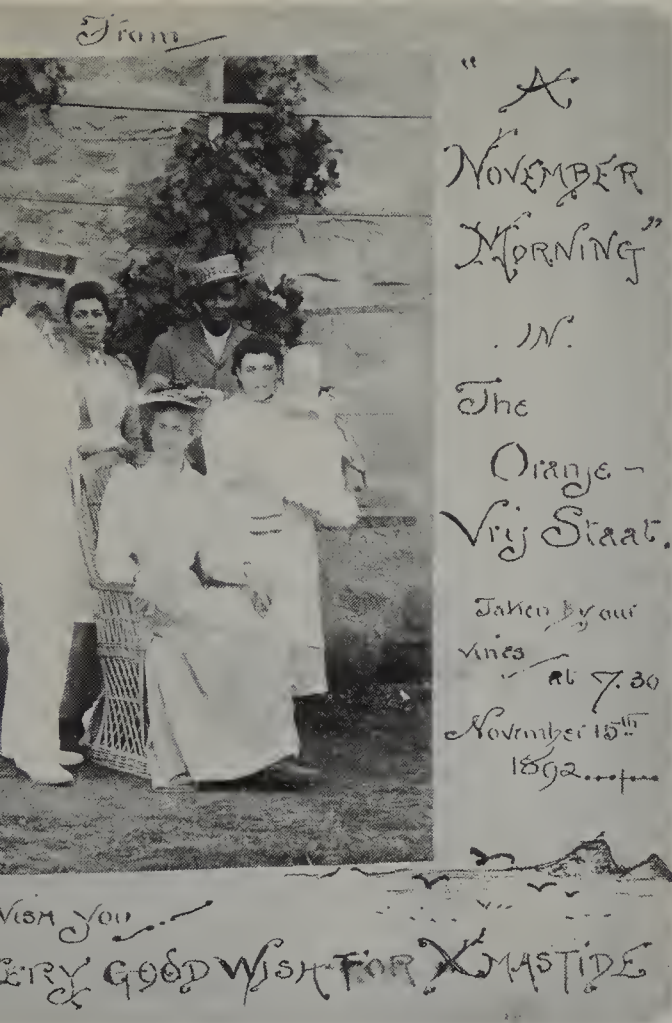 From
" A
NOVEMBER
MORNING"
. IN.
The
Oranje-
Vrij Staat.
Taken by our
vines
at 7.30
November 15th
1892
WISH YOU
ERY GOOD WISH FOR XMASTIDE